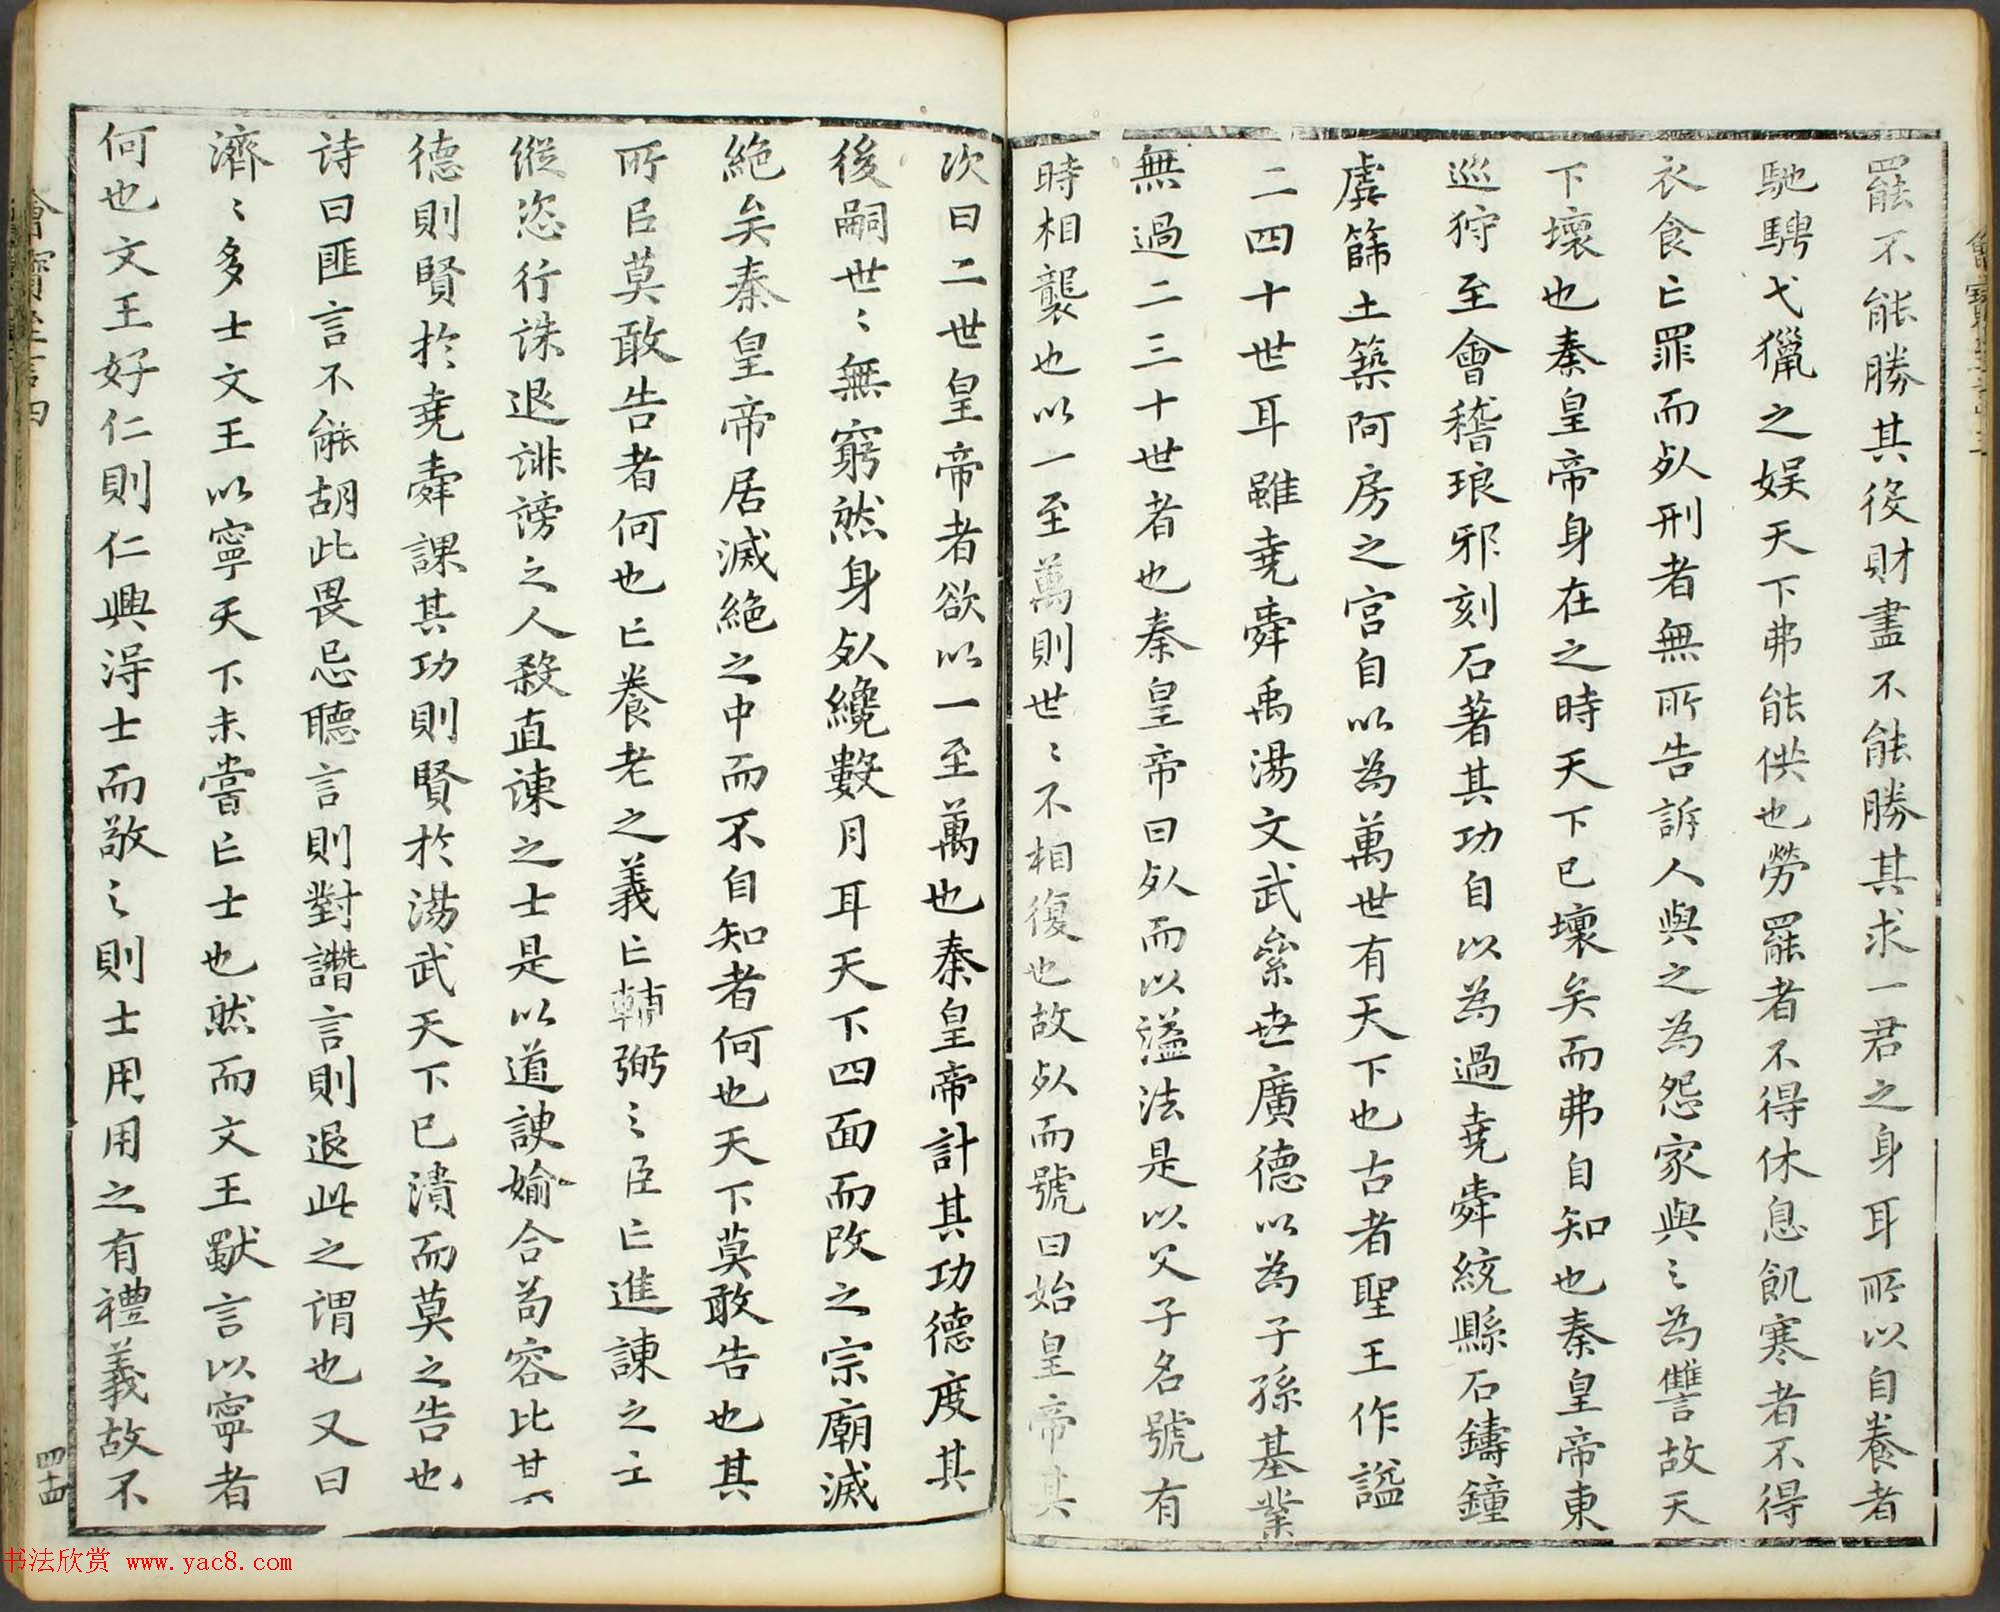 罷不能勝其役財盡不能勝其求一君之身耳所以自養者
馳騁弋獵之娛天下弗能供也勞罷者不得休息飢寒者不得
衣食亡罪而死刑者無所告訴人與之為怨家與〻為讐故天
下壞也秦皇帝身在之時天下已壞矣而弗自知也秦皇帝東
巡狩至會稽琅邪刻石著其功自以為過堯舜統縣石鑄鐘
虡篩土築阿房之宮自以為萬世有天下也古者聖王作諡
二四十世耳雖堯舜禹湯文武絫世廣德以為子孫基業
無過二三十世者也秦皇帝曰死而以諡法是以父子名號有
時相襲也以一至萬則世〻不相復也故死而號曰始皇帝其
次曰二世皇帝者欲以一至萬也秦皇帝計其功德度其
後嗣世〻無窮然身死纔數月耳天下四面而攻之宗廟滅
絕矣秦皇帝居滅絕之中而不自知者何也天下莫敢告也其
所以莫敢告者何也亡養老之義亡輔弼〻臣亡進諫之士
縱恣行誅退誹謗之人殺直諫之士是以道諛婾合苟容比其
德則賢於堯舜課其功則賢於湯武天下已潰而莫之告也
詩曰匪言不能胡此畏忌聽言則對譖言則退此之謂也又曰
濟〻多士文王以寧天下未嘗亡士也然而文王獨言以寧者
何也文王好仁則仁興得士而敬〻則士用用之有禮義故不
四十四
书法欣赏 www.yac8.com